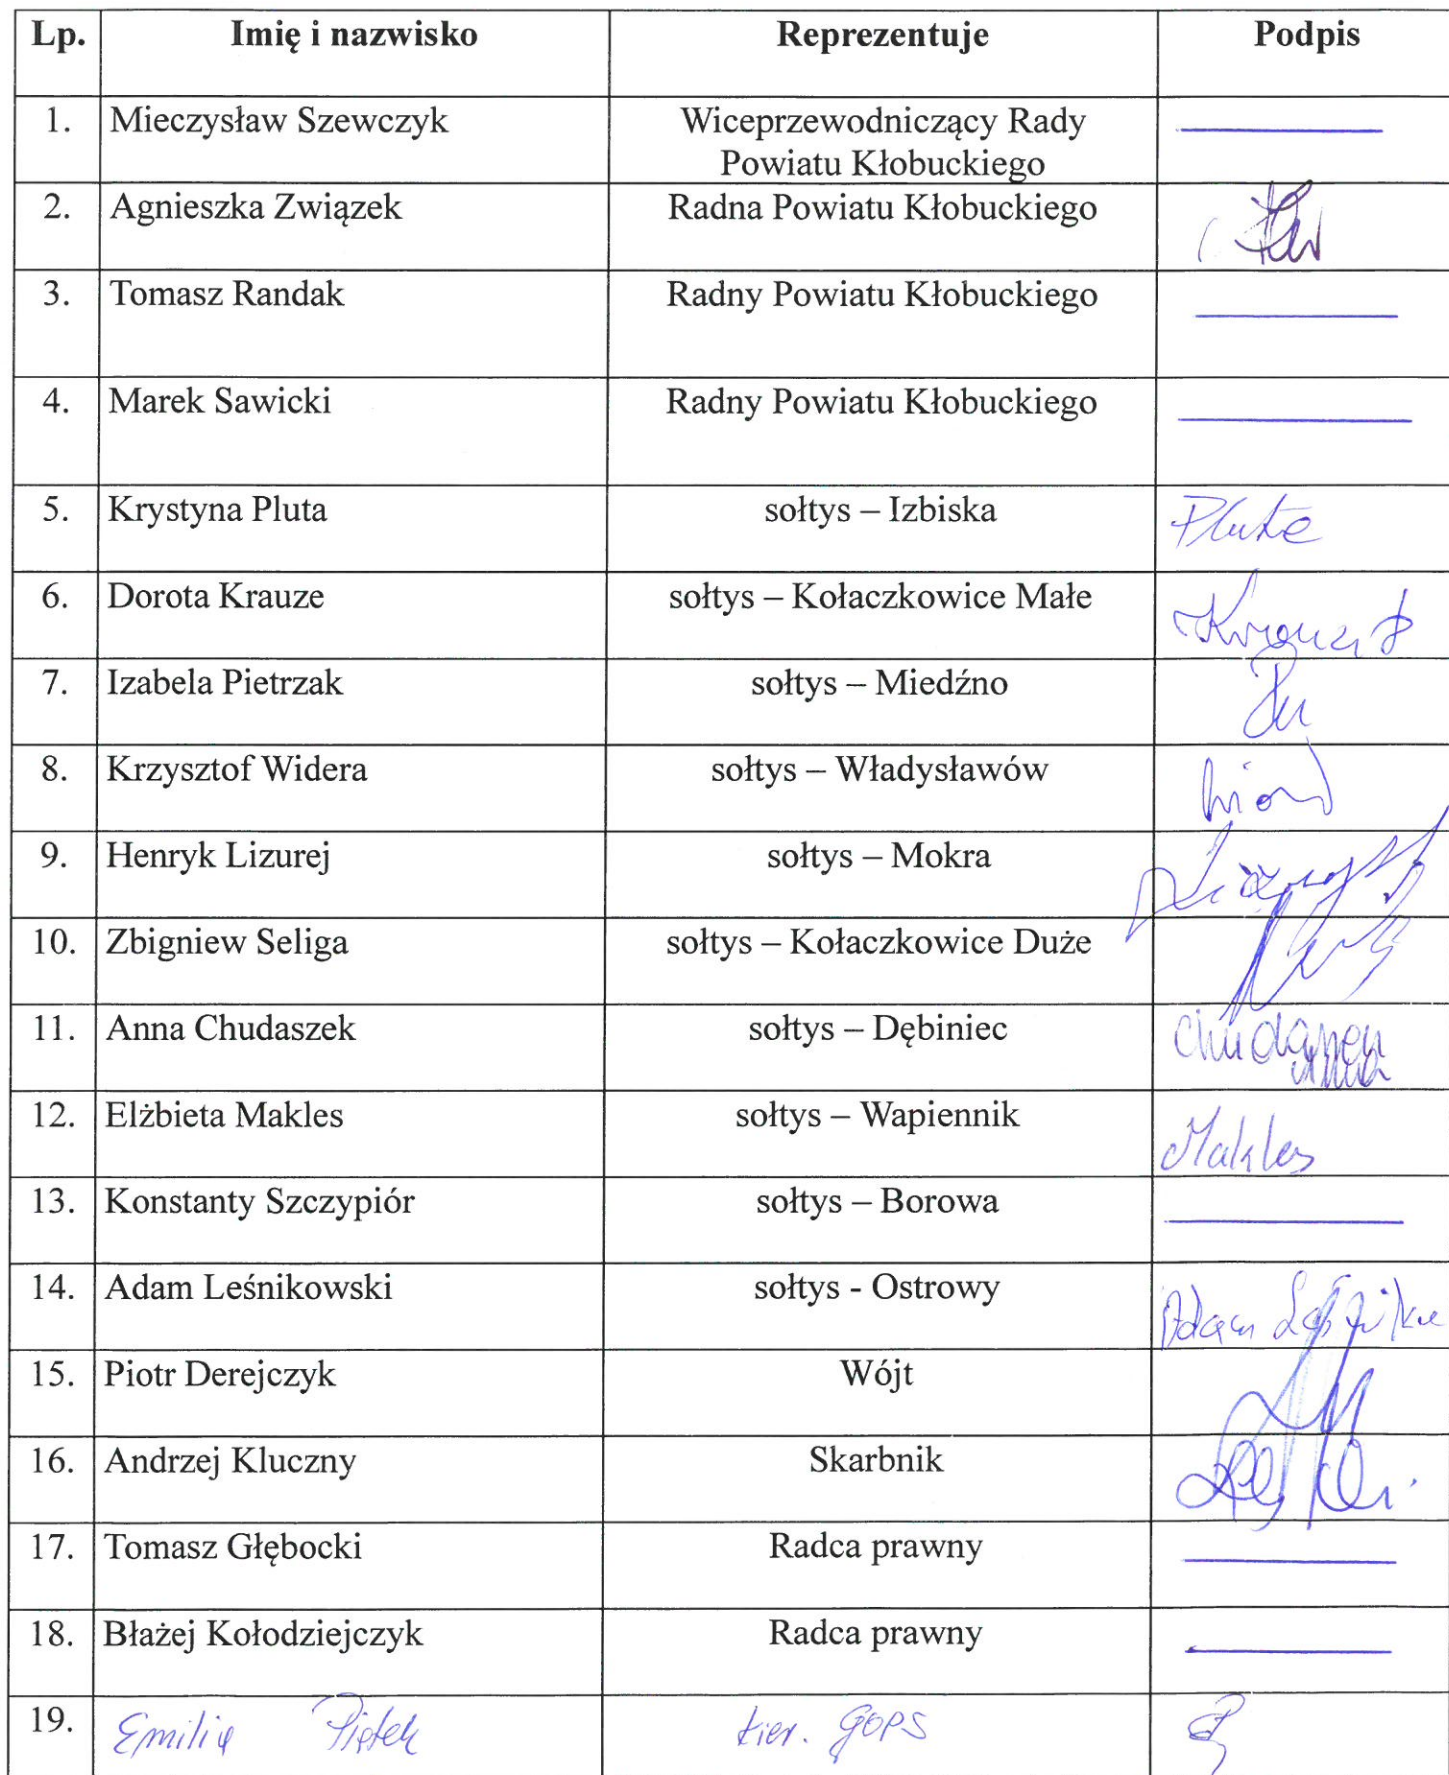 Lp. Imię i nazwisko Reprezentuje Podpis
1. Mieczysław Szewczyk Wiceprzewodniczący Rady
Powiatu Kłobuckiego
2. Agnieszka Związek Radna Powiatu Kłobuckiego
3. Tomasz Randak Radny Powiatu Kłobuckiego
4. Marek Sawicki Radny Powiatu Kłobuckiego
5. Krystyna Pluta sołtys – Izbiska Pluta
6. Dorota Krauze sołtys – Kołaczkowice Małe
7. Izabela Pietrzak sołtys – Miedźno
8. Krzysztof Widera sołtys – Władysławów
9. Henryk Lizurej sołtys – Mokra
10. Zbigniew Seliga sołtys – Kołaczkowice Duże
11. Anna Chudaszek sołtys – Dębiniec
12. Elżbieta Makles sołtys – Wapiennik Makles
13. Konstanty Szczypiór sołtys – Borowa
14. Adam Leśnikowski sołtys - Ostrowy Adam
15. Piotr Derejczyk Wójt
16. Andrzej Kluczny Skarbnik
17. Tomasz Głębocki Radca prawny
18. Błażej Kołodziejczyk Radca prawny
19. Emilia Piętek kier. GOPS